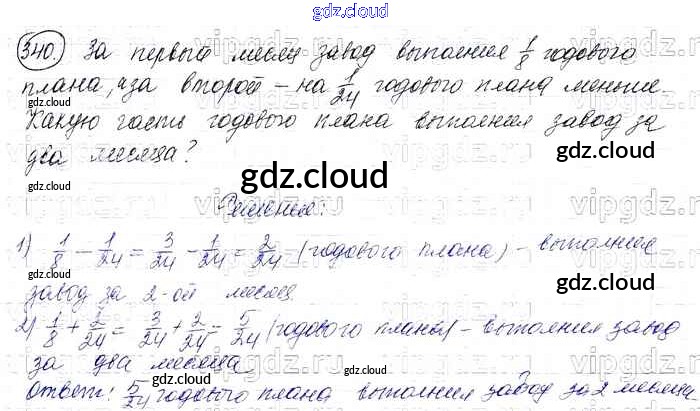 gdz.cloud
340. За первый месяц завод выполнил 1/8 годового
плана, а за второй – на 1/24 годового плана меньше.
Какую часть годового плана выполнил завод за
два месяца?
gdz.cloud
Решение:
1) 1/8 - 1/24 = 3/24 - 1/24 = 2/24 (годового плана) - выполнил
завод за 2-ой месяц
2) 1/8 + 2/24 = 3/24 + 2/24 = 5/24 (годового плана) - выполнил завод
за два месяца
Ответ: 5/24 годового плана выполнил завод за 2 месяца
gdz.cloud